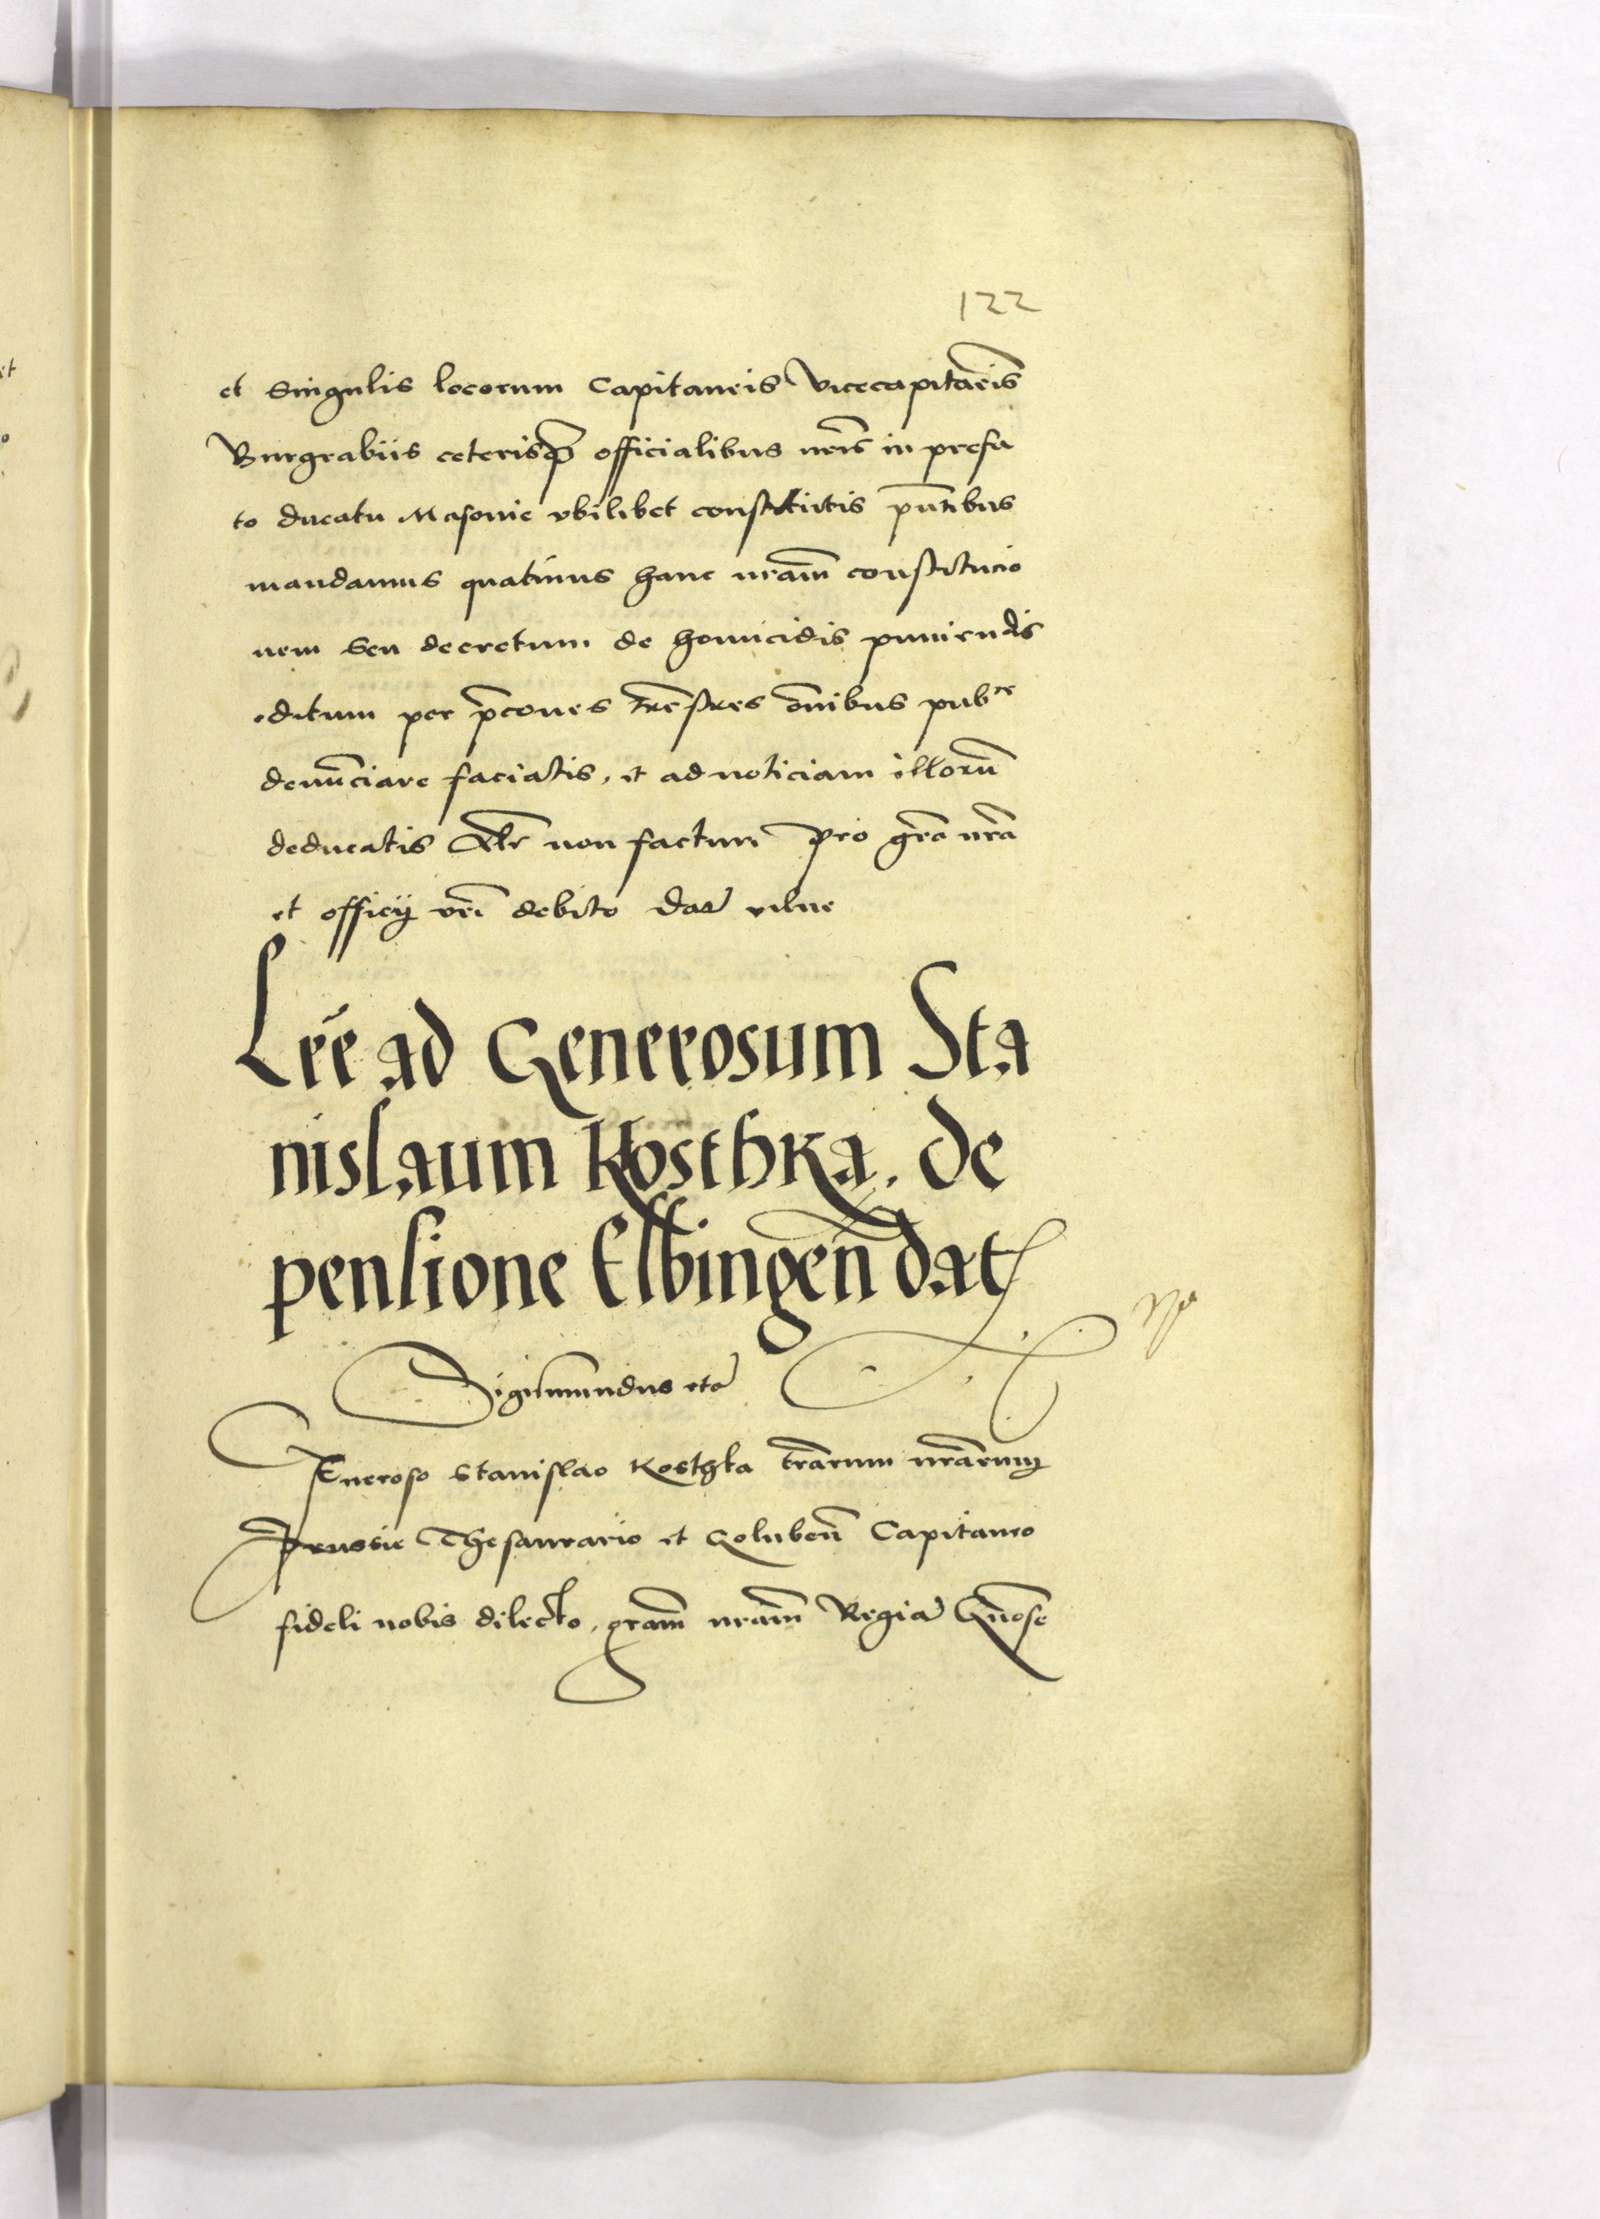 122
et singulis locorum Capitaneis Vicecapitaneis
Burgrabiis ceterisq̃ officialibus nr̃is in prefa
to ducatu Masovie vbilibet constitutis pñtibus
mandamus quatinus hanc nr̃am constitucio
nem seu decretum de homicidis puniendis
editum per p̃cones tr̃estres om̃ibus pubce
denũciare faciatis, et ad noticiam illorũ
deducatis Alr̃ non facturi pro gr̃a nr̃a
et officij vr̃i debito dat vilne
Lr̃e ad Generosum Sta
nislaum Kosthka. de
pensione Elbingeñ dat
Sigismundus etc
Generoso Stanislao Kosthka tr̃arum nr̃arum
Prussie Thesaurario et Golubeñ Capitaneo
fideli nobis dilecto, gr̃am nr̃am Regiã Gñose